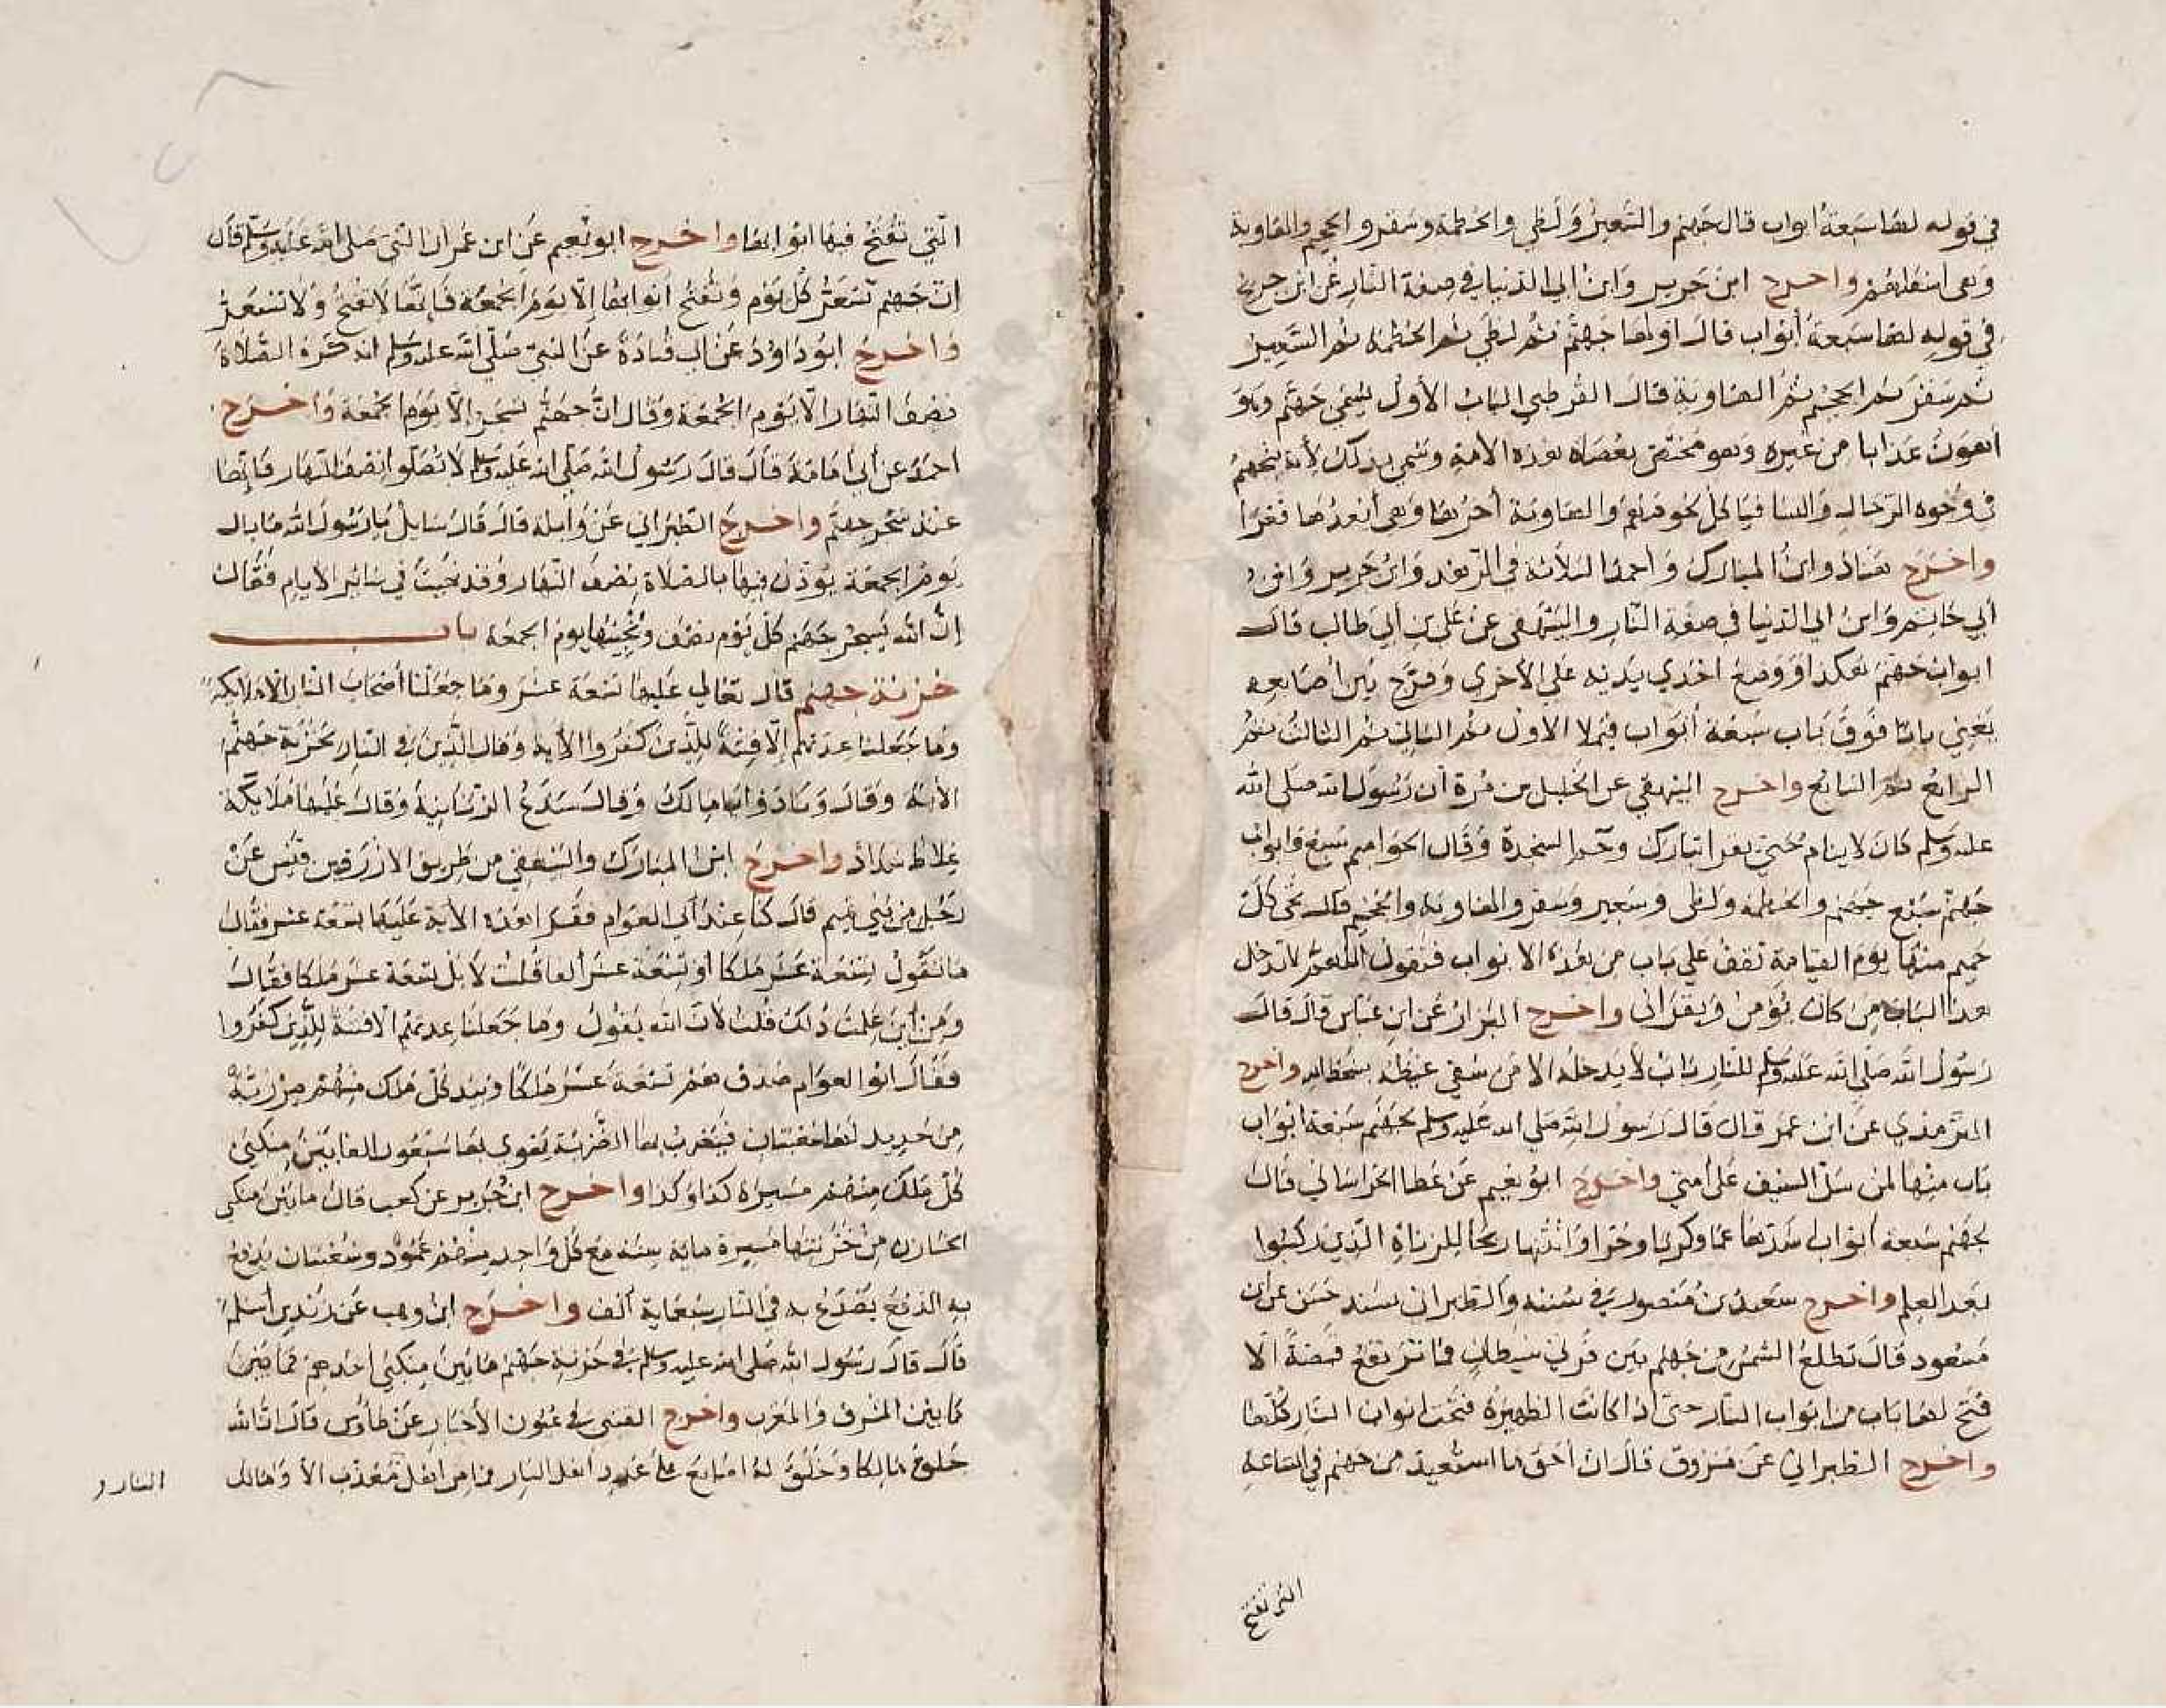 في قوله لها سبعة أبواب قال جهنم والسعير ولظى والحطمة وسقر والجحيم والهاوية
وهي أسفلهم وأخرج ابن جرير وابن أبي الدنيا في صفة النار عن ابن جريج
في قوله لها سبعة أبواب قال أولها جهنم ثم لظى ثم الحطمة ثم السعير
ثم سقر ثم الجحيم ثم الهاوية قال القرطبي الباب الأول يسمى جهنم وهو
أهون عذابا من غيره وهو مختص بعصاة هذه الأمة وسمي بذلك لأنه يتجهم
في وجوه الرجال والنسا فياكل لحومهم والهاوية آخرها وهي أبعدها قعرا
وأخرج هناد وابن المبارك وأحمد الثلاثة في الزهد وابن جرير وابن
أبي حاتم وابن أبي الدنيا في صفة النار والبيهقي عن علي بن أبي طالب قال
أبواب جهنم هكذا ووضع احدي يديه علي الأخرى وفرج بين أصابعه
يعني بابا فوق باب سبعة أبواب فيملا الأول ثم الثاني ثم الثالث ثم
الرابع ثم السابع وأخرج البيهقي عن الخليل بن مرة أن رسول الله صلى الله
عليه وسلم كان لا ينام حتى يقرا تبارك وحم السجدة وقال الحواميم سبع وابواب
جهنم سبع جهنم والحطمة ولظى وسعير وسقر والهاوية والجحيم قال تجي كل
حميم منها يوم القيامة تقف علي باب من هذه الابواب فتقول اللهم لا تدخل
هذا الباب من كان يؤمن ويقراني وأخرج البزار عن ابن عباس قال قال
رسول الله صلى الله عليه وسلم للنار باب لا يدخله الا من شفي غيظه بسخط الله وأخرج
الترمذي عن ابن عمر قال قال رسول الله صلى الله عليه وسلم لجهنم سبعة ابواب
باب منها لمن سل السيف على أمتي وأخرج ابو نعيم عن عطا الخراساني قال
لجهنم سبعة أبواب أشدها غما وكربا وحرا وأنتنها ريحا للزناة الذين ركبوا
بعد العلم وأخرج سعيد بن منصور في سننه والطبراني بسند حسن عن ابن
مسعود قال تطلع الشمس من جهنم بين قرني شيطان فما ترتفع قصمة الا
فتح لها باب من ابواب النار حتى اذا كانت الظهيرة فتحت ابواب النار كلها
وأخرج الطبراني عن مسروق قال ان أحق ما استعيذ من جهنم في الساعة
التي تفتح
التي تفتح فيها ابوابها وأخرج ابو نعيم عن ابن عمر أن النبي صلى الله عليه وسلم قال
ان جهنم تسعر كل يوم وتفتح أبوابها إلا يوم الجمعة فإنها لا تفتح ولا تسعر
وأخرج ابو داود عن أبي قتادة عن النبي صلى الله عليه وسلم انه كره الصلاة
نصف النهار الا يوم الجمعة وقال ان جهنم تسجر إلا يوم الجمعة وأخرج
احمد عن أبي أمامة قال قال رسول الله صلى الله عليه وسلم لا تصلوا نصف النهار فإنها
عند سجر جهنم وأخرج الطبراني عن واثلة قال قال سايل يا رسول الله ما بال
يوم الجمعة يؤذن فيها بالصلاة نصف النهار وقد نهيت في سائر الأيام فقال
إن الله يسجر جهنم كل يوم نصف ويخبيها يوم الجمعة باب
خزنة جهنم قال تعالي عليها تسعة عشر وما جعلنا أصحاب النار الا ملايكة
وما جعلنا عدتهم إلا فتنة للذين كفروا الآية وقال الذين في النار لخزنة جهنم
الآية وقال ونادوا يا مالك وقال سندع الزبانية وقال عليها ملايكة
غلاظ شداد وأخرج ابن المبارك والبيهقي من طريق الازرق بن قيس عن
رجل من بني تميم قال كنا عند أبي العوام فقرا هذه الآية عليها تسعة عشر فقال
ما تقول تسعة عشر ملكا أو تسعة عشر ألفا قلت لا بل تسعة عشر ملكا فقال
ومن أين علمت ذلك قلت لأن الله يقول وما جعلنا عدتهم الا فتنة للذين كفروا
فقال ابو العوام صدق هم تسعة عشر ملكا وبيد كل ملك منهم مرزبة
من حديد لها شعبتان فيضرب بها الضربة يهوي بها سبعون الفا بين منكبي
كل ملك منهم مسيرة كذا وكذا وأخرج ابن جرير عن كعب قال ما بين منكبي
الخازن من خزنتها مسيرة ماية سنة مع كل واحد منهم عمود وشعبتان يدفع
به الدفع يصدع به في النار سبعماية ألف وأخرج ابن وهب عن زيد بن أسلم
قال قال رسول الله صلى الله عليه وسلم في خزنة جهنم ما بين منكبي احدهم كما بين
كما بين المشرق والمغرب وأخرج القتبي في عيون الأخبار عن طاوس قال ان الله
خلق مالكا وخلق له اصابع على عدد أهل النار فما من اهل معذب الا ومالك
النار و